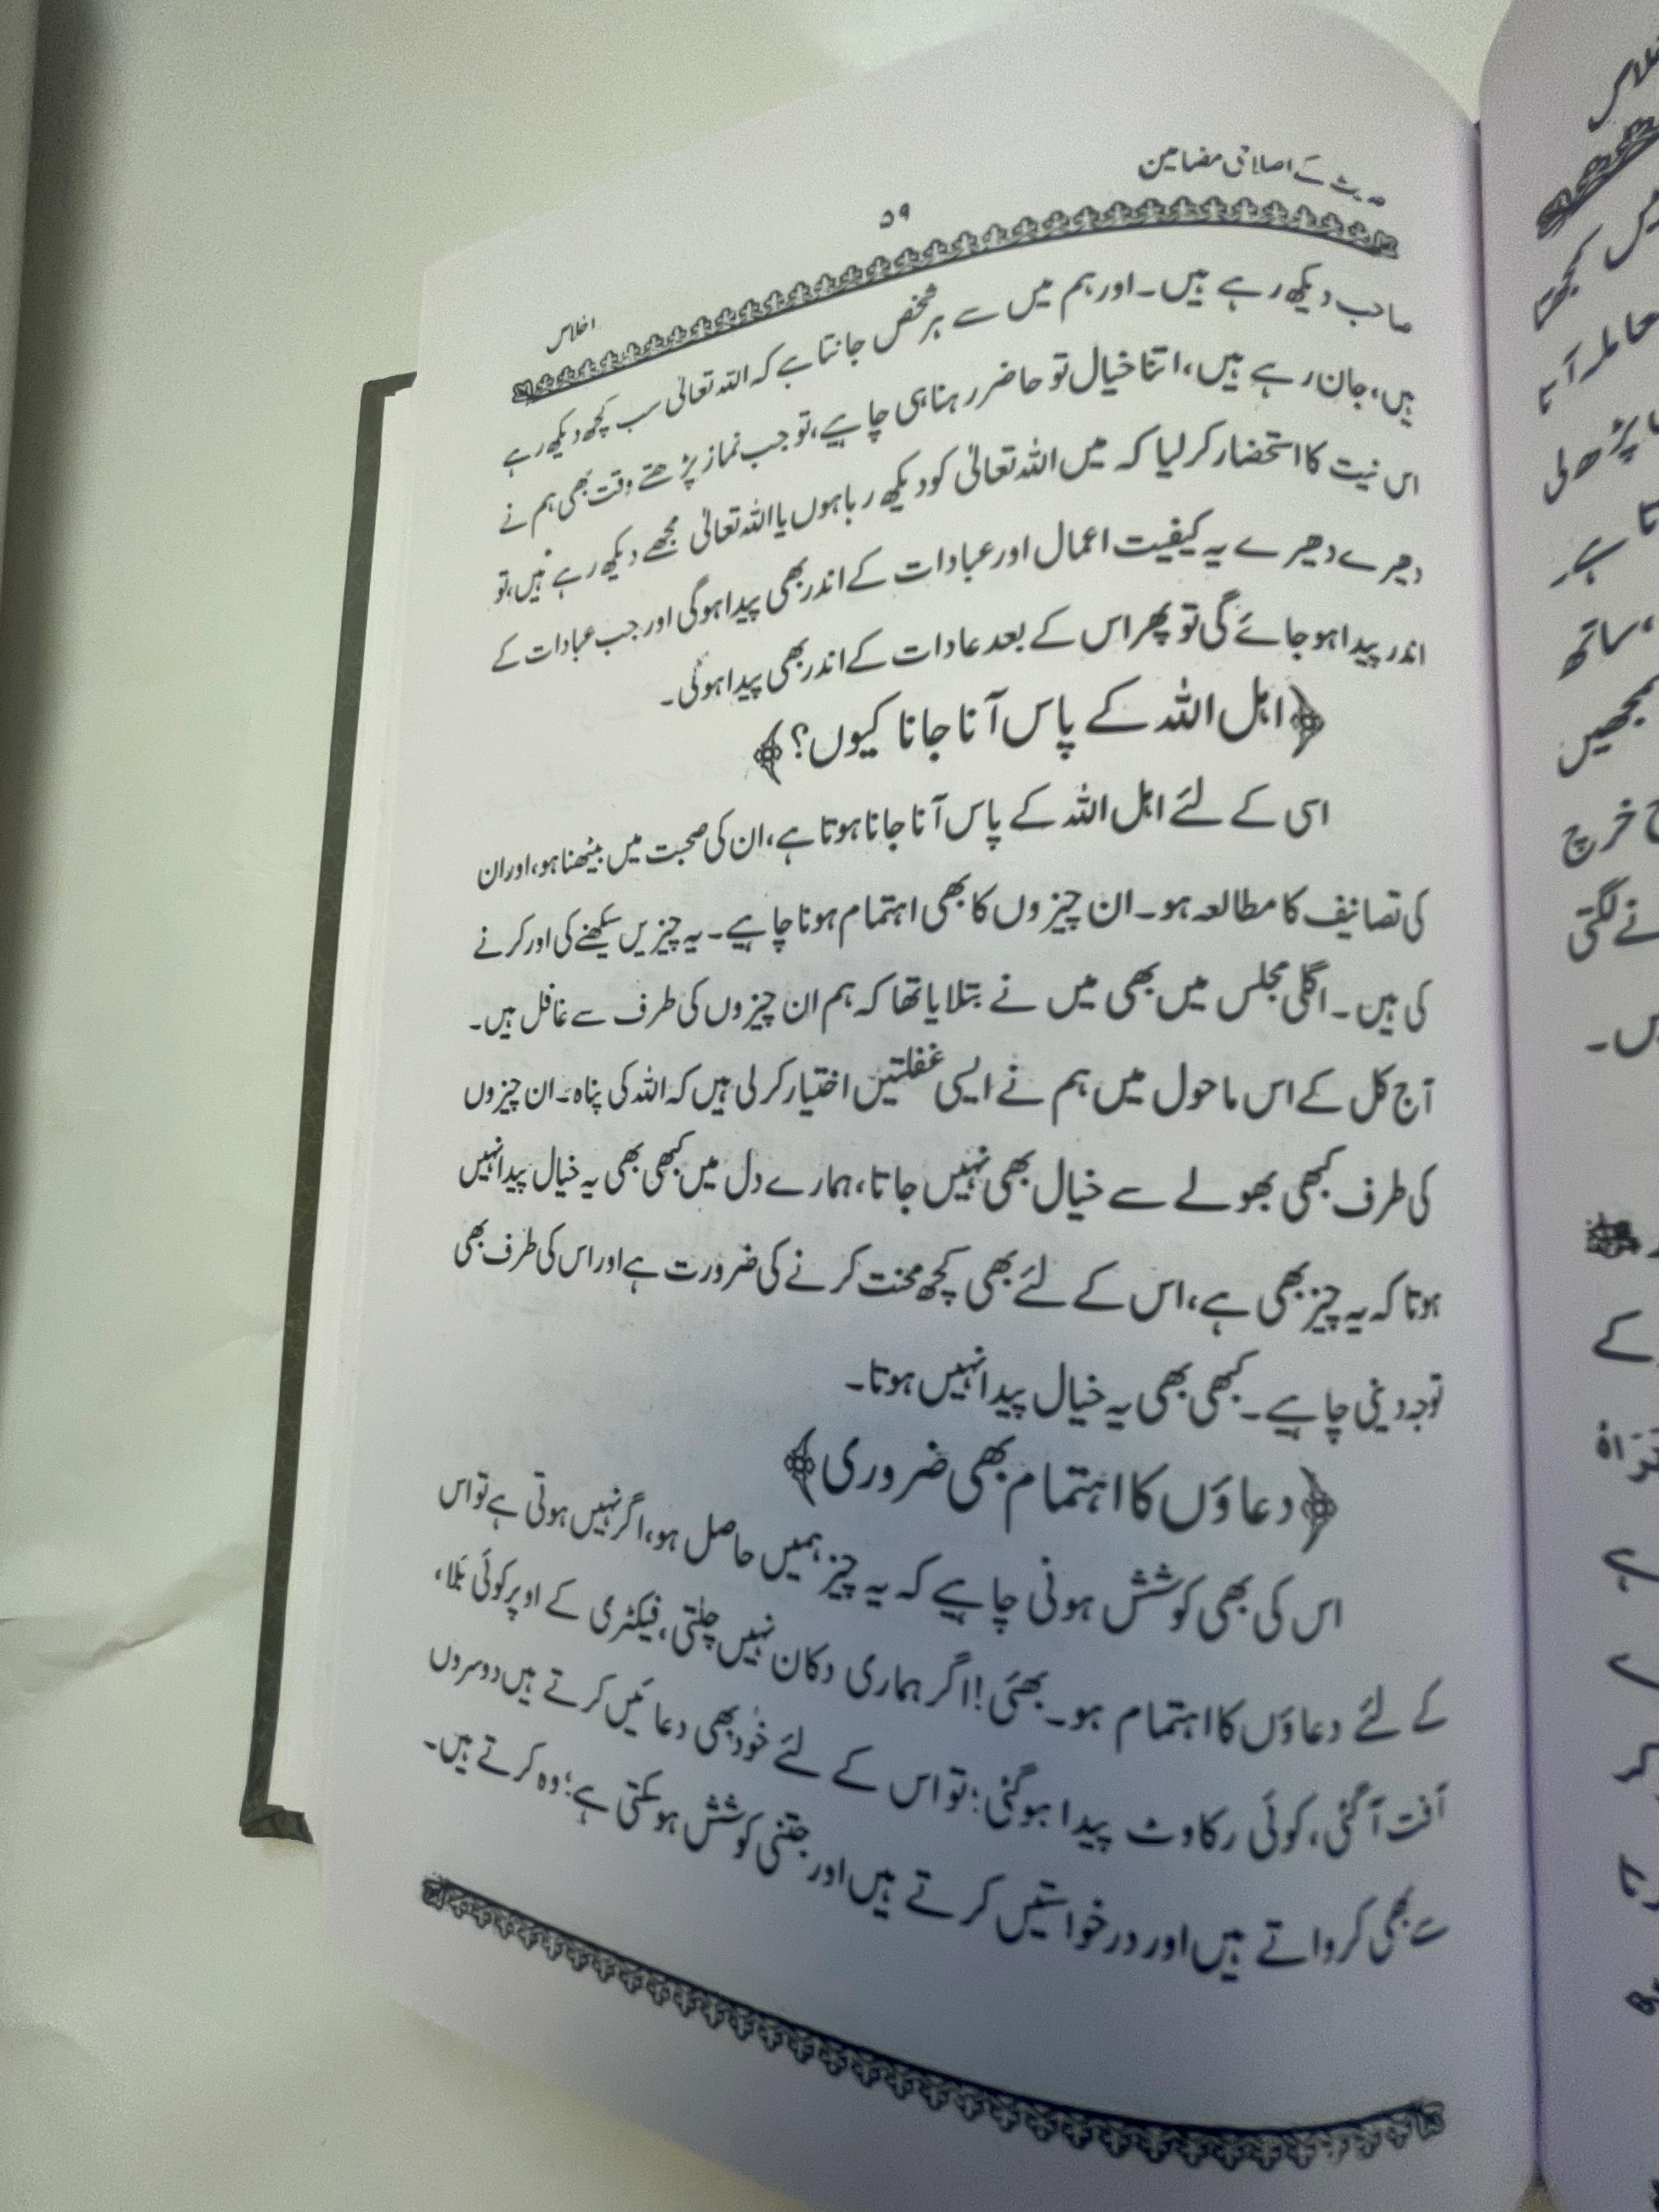 حدیث کے اصلاحی مضامین
۵۹
اخلاص
صاحب دیکھ رہے ہیں۔ اور ہم میں سے ہر شخص جانتا ہے کہ اللہ تعالیٰ سب کچھ دیکھ رہے
ہیں، جان رہے ہیں، اتنا خیال تو حاضر رہنا ہی چاہیے، تو جب نماز پڑھتے وقت بھی ہم نے
اس نیت کا استحضار کر لیا کہ میں اللہ تعالیٰ کو دیکھ رہا ہوں یا اللہ تعالیٰ مجھے دیکھ رہے ہیں، تو
دھیرے دھیرے یہ کیفیت اعمال اور عبادات کے اندر بھی پیدا ہوگی اور جب عبادات کے
اندر پیدا ہو جائے گی تو پھر اس کے بعد عادات کے اندر بھی پیدا ہوگی۔
﴿اہل اللہ کے پاس آنا جانا کیوں؟﴾
اسی کے لئے اہل اللہ کے پاس آنا جانا ہوتا ہے، ان کی صحبت میں بیٹھنا ہو، اور ان
کی تصانیف کا مطالعہ ہو۔ ان چیزوں کا بھی اہتمام ہونا چاہیے۔ یہ چیزیں سیکھنے کی اور کرنے
کی ہیں۔ اگلی مجلس میں بھی میں نے بتلایا تھا کہ ہم ان چیزوں کی طرف سے غافل ہیں۔
آج کل کے اس ماحول میں ہم نے ایسی غفلتیں اختیار کر لی ہیں کہ اللہ کی پناہ۔ ان چیزوں
کی طرف کبھی بھولے سے خیال بھی نہیں جاتا، ہمارے دل میں کبھی بھی یہ خیال پیدا نہیں
ہوتا کہ یہ چیز بھی ہے، اس کے لئے بھی کچھ محنت کرنے کی ضرورت ہے اور اس کی طرف بھی
توجہ دینی چاہیے۔ کبھی بھی یہ خیال پیدا نہیں ہوتا۔
﴿دعاؤں کا اہتمام بھی ضروری﴾
اس کی بھی کوشش ہونی چاہیے کہ یہ چیز ہمیں حاصل ہو، اگر نہیں ہوتی ہے تو اس
کے لئے دعاؤں کا اہتمام ہو۔ بھئی! اگر ہماری دکان نہیں چلتی، فیکٹری کے اوپر کوئی بَلا،
آفت آ گئی، کوئی رکاوٹ پیدا ہو گئی؛ تو اس کے لئے خود بھی دعائیں کرتے ہیں دوسروں
سے بھی کرواتے ہیں اور درخواستیں کرتے ہیں اور جتنی کوشش ہو سکتی ہے؛ وہ کرتے ہیں۔
میں کچھ
پڑھ لی
ساتھ
سمجھیں
خرچ
نے لگتی
کے
ہے